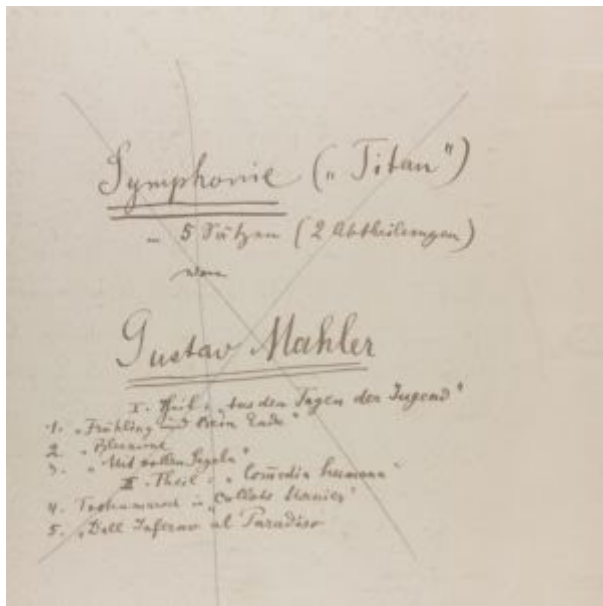 Symphonie („Titan")
in 5 Sätzen (2 Abtheilungen)
von
Gustav Mahler
I. Theil: „Aus den Tagen der Jugend"
1. „Frühling und kein Ende"
2. „Blumine
3. „Mit vollen Segeln"
II. Theil: „Comedia humana"
4. Todtenmarsch in „Callots Manier"
5. „Dall Inferno al Paradiso